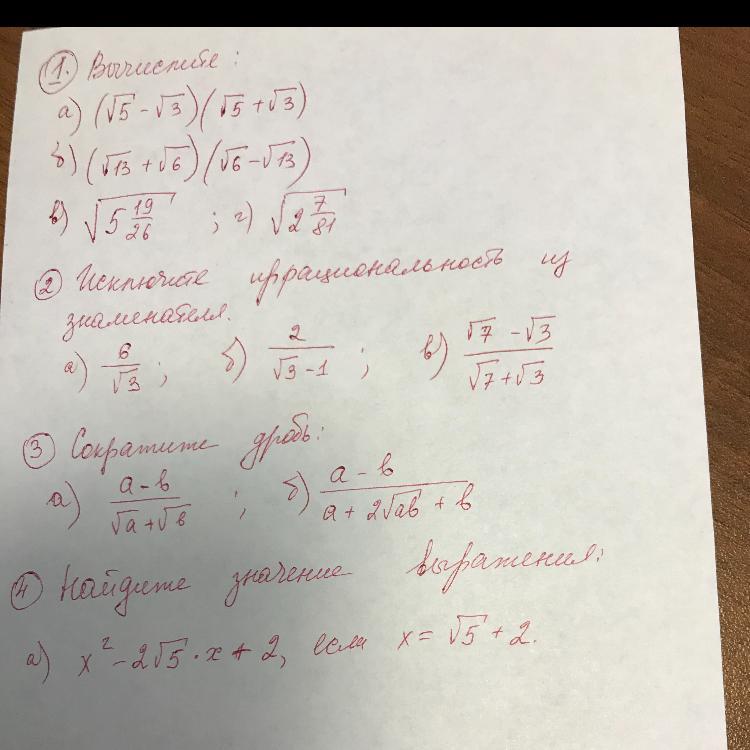 1. Вычислите:
а) (√5 - √3)(√5 + √3)
б) (√13 + √6)(√6 - √13)
в) √(5 19/26) ; г) √(2 7/81)
2 Исключите иррациональность из
знаменателя.
а) 6/√3 ; б) 2/(√3 - 1) ; в) (√7 - √3)/(√7 + √3)
3 Сократите дробь:
а) (a - b)/(√a + √b) ; б) (a - b)/(a + 2√ab + b)
4 Найдите значение выражения:
а) x² - 2√5 · x + 2, если x = √5 + 2.